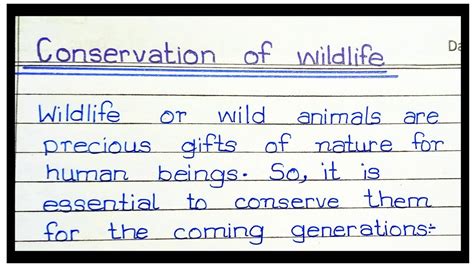 Conservation of wildlife
Da
Wildlife or wild animals are
precious gifts of nature for
human beings. So, it is
essential to conserve them
for the coming generations:-